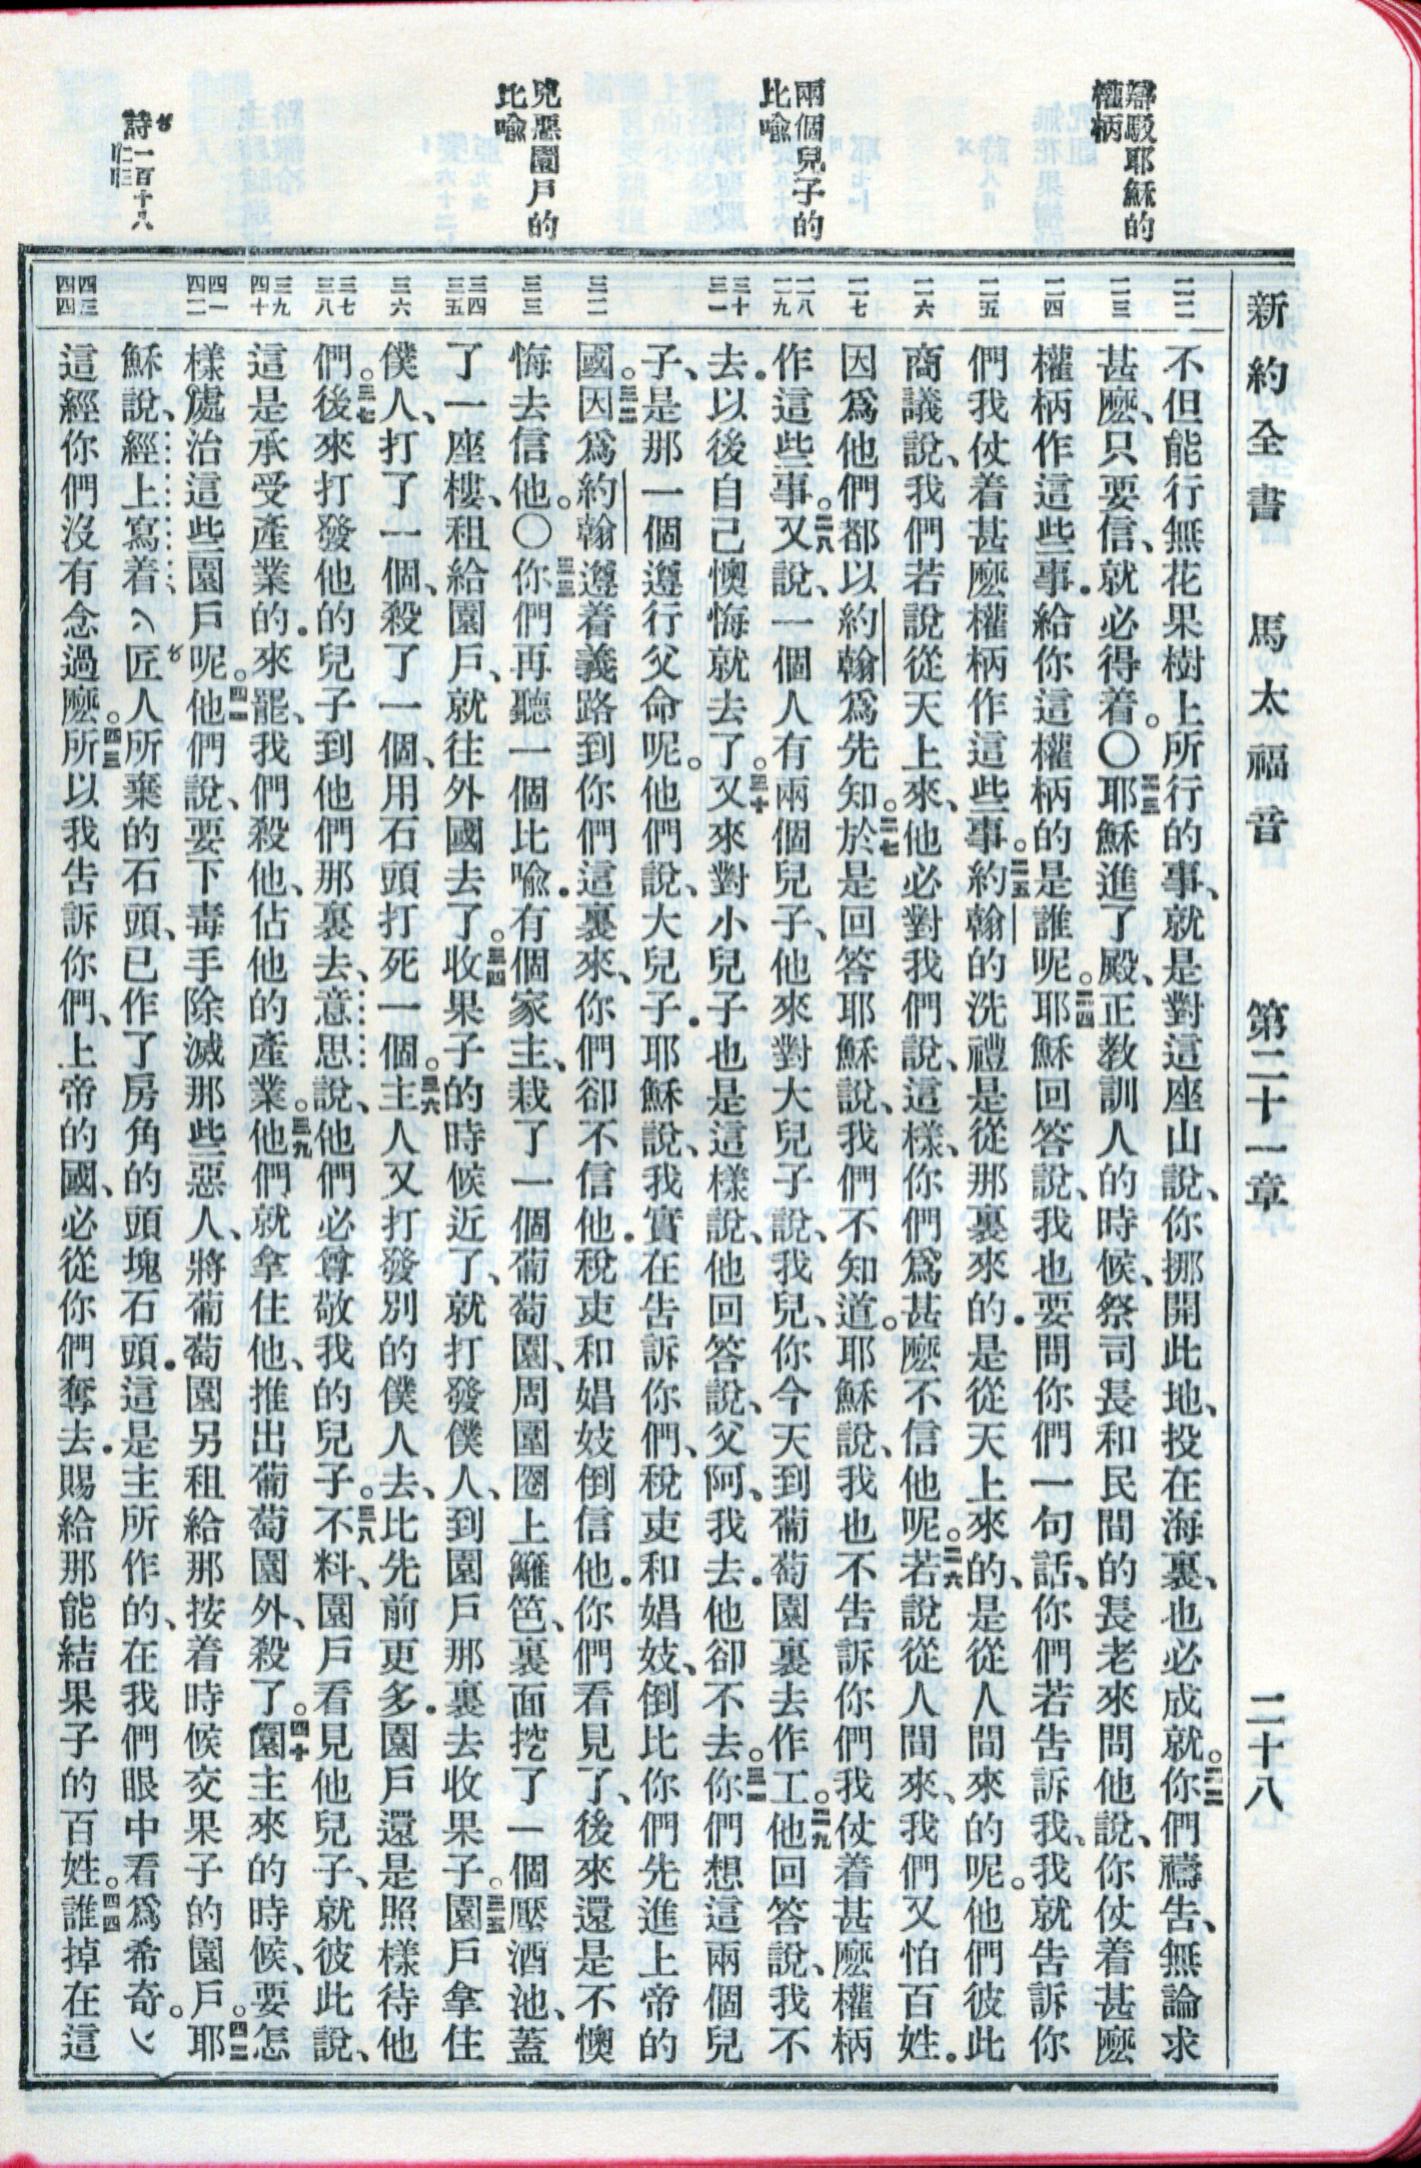 新約全書 馬太福音 第二十一章 二十八
辯駁耶穌的
權柄
兩個兒子的
比喻
兇惡園戶的
比喻
詩一百十八
二二
二三
二四
二五
二六
二七
二八
二九
三十
三一
三二
三三
三四
三五
三六
三七
三八
三九
四十
四一
四二
四三
四四
不但能行無花果樹上所行的事、就是對這座山說、你挪開此地、投在海裏、也必成就。二二你們禱告、無論求
甚麼、只要信、就必得着。〇二三耶穌進了殿、正教訓人的時候、祭司長和民間的長老來問他說、你仗着甚麼
權柄作這些事．給你這權柄的是誰呢。二四耶穌回答說、我也要問你們一句話、你們若告訴我、我就告訴你
們我仗着甚麼權柄作這些事。二五約翰的洗禮是從那裏來的．是從天上來的、是從人間來的呢。他們彼此
商議說、我們若說從天上來、他必對我們說、這樣、你們爲甚麼不信他呢。二六若說從人間來、我們又怕百姓．
因爲他們都以約翰爲先知。二七於是回答耶穌說、我們不知道。耶穌說、我也不告訴你們我仗着甚麼權柄
作這些事。二八又說、一個人有兩個兒子、他來對大兒子說、我兒、你今天到葡萄園裏去作工。二九他回答說、我不
去．以後自己懊悔就去了。三十又來對小兒子也是這樣說、他回答說、父阿、我去．他卻不去。三一你們想這兩個兒
子、是那一個遵行父命呢。他們說、大兒子．耶穌說、我實在告訴你們、稅吏和娼妓、倒比你們先進上帝的
國。三二因爲約翰遵着義路到你們這裏來、你們卻不信他．稅吏和娼妓倒信他．你們看見了、後來還是不懊
悔去信他。〇三三你們再聽一個比喻．有個家主、栽了一個葡萄園、周圍圈上籬笆、裏面挖了一個壓酒池、蓋
了一座樓、租給園戶、就往外國去了。三四收果子的時候近了、就打發僕人、到園戶那裏去收果子。三五園戶拿住
僕人、打了一個、殺了一個、用石頭打死一個。三六主人又打發別的僕人去、比先前更多．園戶還是照樣待他
們。三七後來打發他的兒子到他們那裏去、意思說、他們必尊敬我的兒子。三八不料、園戶看見他兒子、就彼此說、
這是承受產業的．來罷、我們殺他、佔他的產業。三九他們就拿住他、推出葡萄園外、殺了。四十園主來的時候、要怎
樣處治這些園戶呢。四一他們說、要下毒手除滅那些惡人、將葡萄園另租給那按着時候交果子的園戶。四二耶
穌說、經上寫着、匠人所棄的石頭、已作了房角的頭塊石頭．這是主所作的、在我們眼中看爲希奇。
這經你們沒有念過麼。四三所以我告訴你們、上帝的國、必從你們奪去．賜給那能結果子的百姓。四四誰掉在這